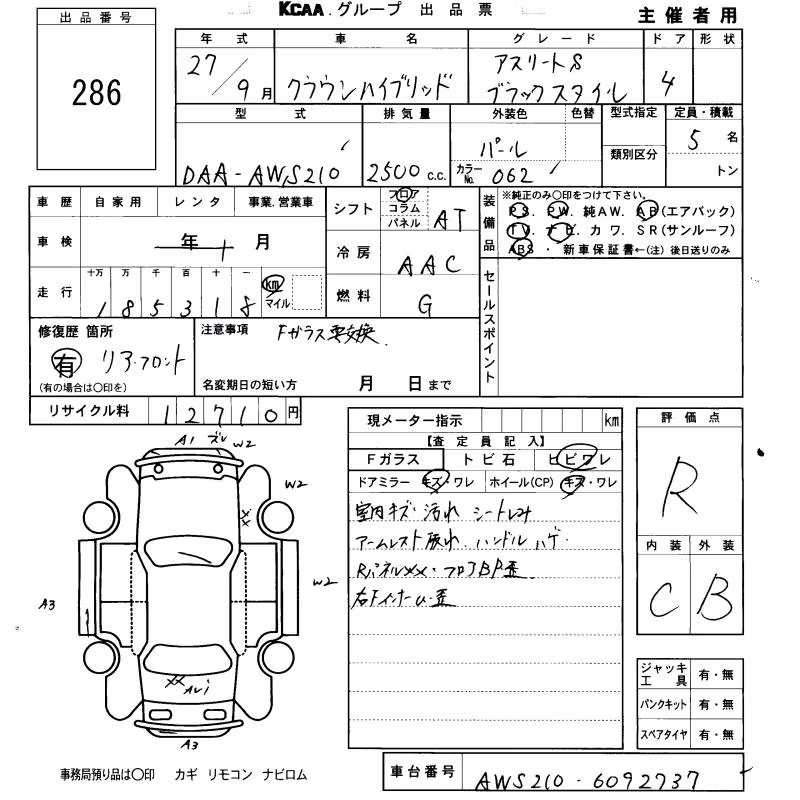 KCAA.グループ 出品票
主催者用
出品番号
286
年式 車名 グレード ドア 形状
27/9月 クラウンハイブリッド アスリートS ブラックスタイル 4
型式 排気量 外装色 色替 型式指定 定員・積載
DAA-AWS210 2500c.c. パール 類別区分 5名
カラーNo. 062 トン
車歴 自家用 レンタ 事業.営業車
車検 年 月
走行 十万 万 千 百 十 一
185318 km マイル
シフト フロア コラム パネル AT
冷房 AAC
燃料 G
装備品
※純正のみ○印をつけて下さい。
PS. PW. 純AW. AB(エアバック)
TV. ナビ. カワ. SR(サンルーフ)
ABS ・ 新車保証書←(注) 後日送りのみ
セールスポイント
修復歴 箇所
有 リア.フロント
(有の場合は○印を)
注意事項 Fガラス要交換.
名変期日の短い方 月 日まで
リサイクル料 12710円
現メーター指示 km
【査定員記入】
Fガラス トビ石 ヒビワレ
ドアミラー キズ・ワレ ホイール(CP) キズ・ワレ
室内キズ・汚れ シート
アームレスト ハンドル ハゲ.
Rパネル
評価点
R
内装 外装
C B
ジャッキ工具 有・無
パンクキット 有・無
スペアタイヤ 有・無
A1 ズレ W2
W2
W2
A3
XX
XX
A3
事務局預り品は○印 カギ リモコン ナビロム
車台番号 AWS210-6092737